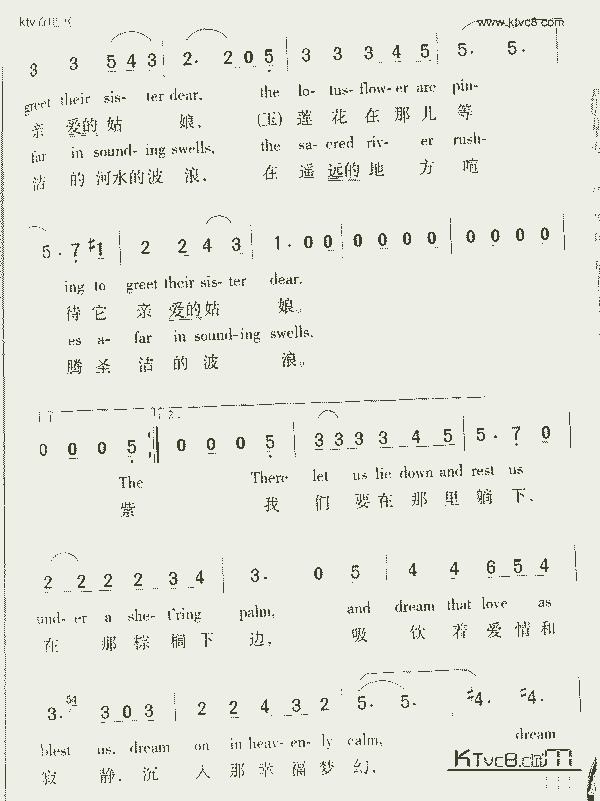 www.ktvc8.com
3 3 5 4 3 | 2. 2 0 5 | 3 3 3 4 5 | 5. 5. |
greet their sis- ter dear, the lo- tus-flow-er are pin-
亲 爱的姑 娘, (玉) 莲 花 在 那 儿 等
far in sound-ing swells, the sa- cred riv- er rush-
洁 的 河水的波 浪, 在 遥 远的 地 方 喧
5. 7 #1 | 2 2 4 3 | 1. 0 0 | 0 0 0 0 | 0 0 0 0 |
ing to greet their sis- ter dear.
待 它 亲 爱的姑 娘。
es a- far in sound-ing swells.
腾 圣 洁 的 波 浪。
0 0 0 5 :| 0 0 0 5 | 3 3 3 3 4 5 | 5. 7 0 |
The There let us lie down and rest us
紫 我 们 要 在 那 里 躺 下,
2 2 2 2 3 4 | 3. 0 5 | 4 4 6 5 4 |
und- er a she- t'ring palm, and dream that love as
在 那 棕 榈 下 边, 吸 饮 着 爱 情 和
3. 54 3 0 3 | 2 2 4 3 2 | 5. 5. #4. | #4. |
blest us, dream on in heav- en- ly calm, dream
寂 静, 沉 入 那 幸 福 梦 幻,
KTvc8.com